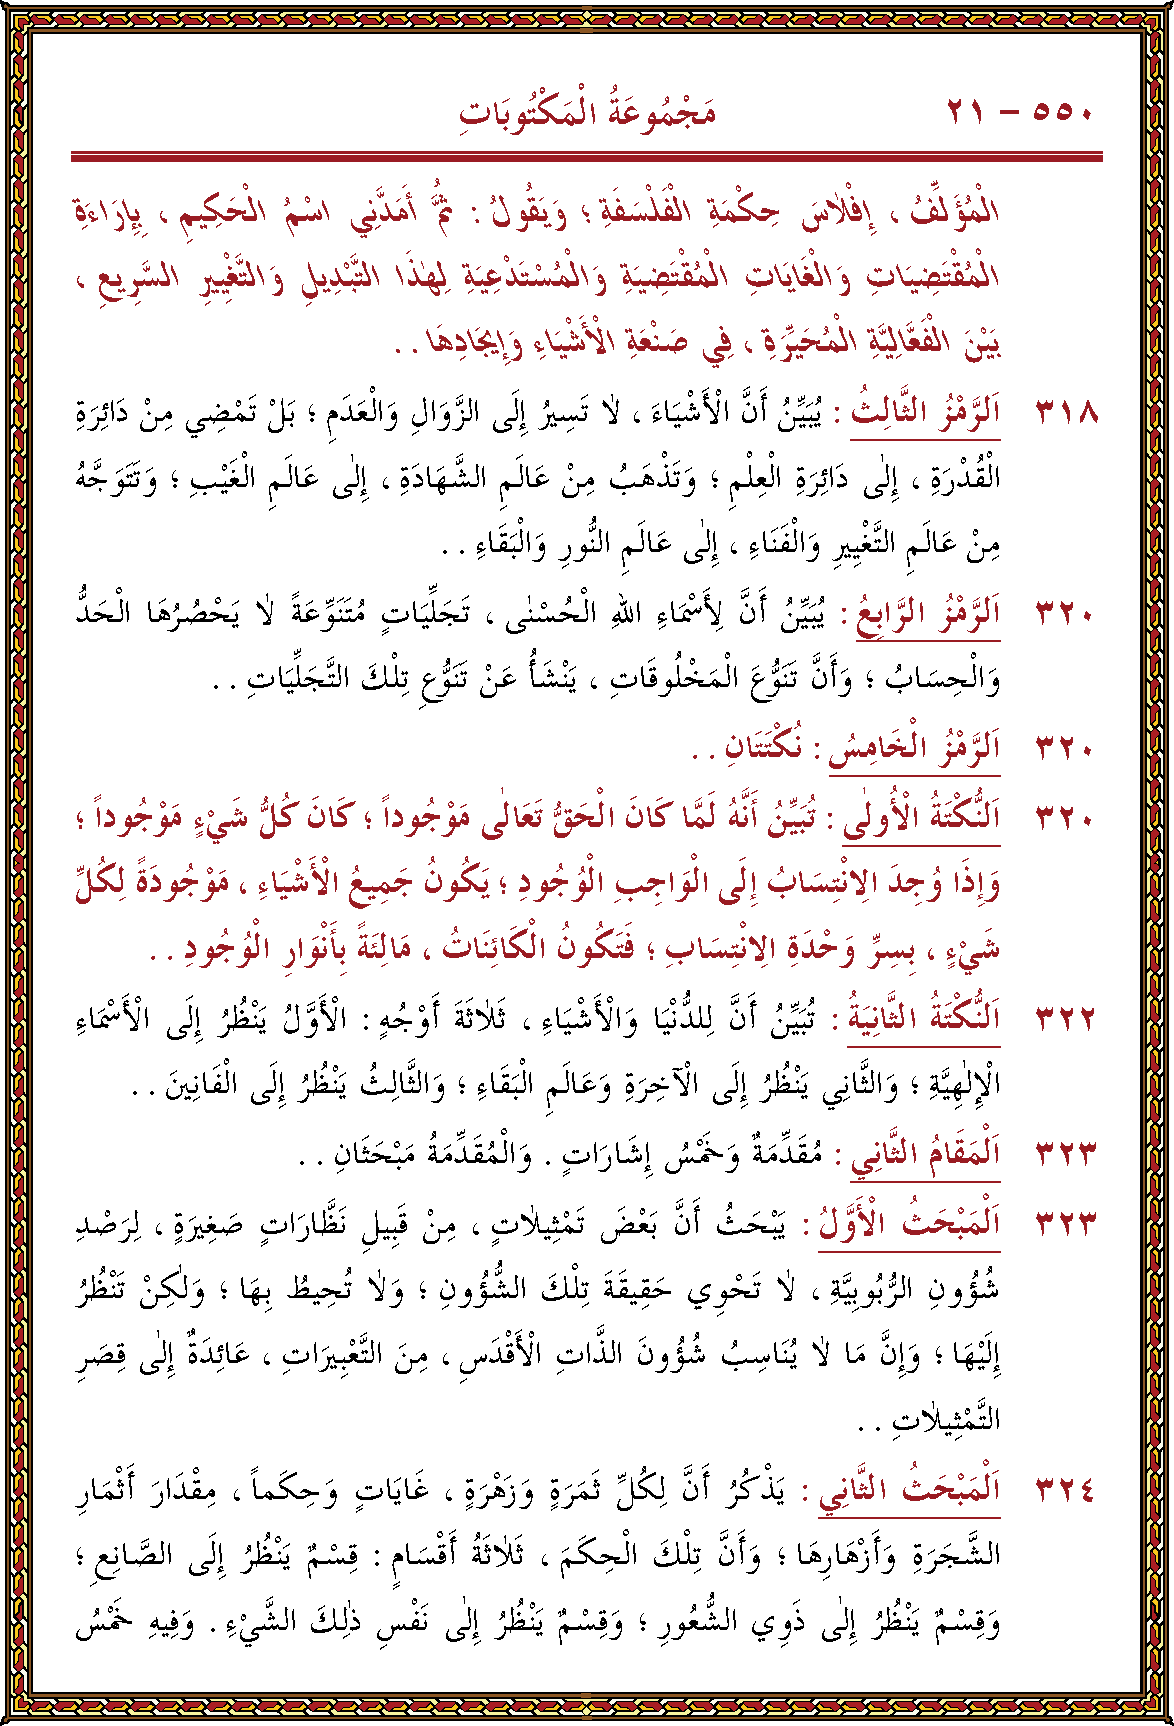 ٥٥٠ – ٢١ مَجْمُوعَةُ الْمَكْتُوبَاتِ
الْمُؤَلِّفُ ، إِفْلَاسَ حِكْمَةِ الْفَلْسَفَةِ ؛ وَيَقُولُ : ثُمَّ أَمَدَّنِي اسْمُ الْحَكِيمِ ، بِإِرَاءَةِ
الْمُقْتَضِيَاتِ وَالْغَايَاتِ الْمُقْتَضِيَةِ وَالْمُسْتَدْعِيَةِ لِهٰذَا التَّبْدِيلِ وَالتَّغْيِيرِ السَّرِيعِ ،
بَيْنَ الْفَعَّالِيَّةِ الْمُحَيِّرَةِ ، فِي صَنْعَةِ الْأَشْيَاءِ وَإِيجَادِهَا . .
٣١٨ اَلرَّمْزُ الثَّالِثُ : يُبَيِّنُ أَنَّ الْأَشْيَاءَ ، لَا تَسِيرُ إِلَى الزَّوَالِ وَالْعَدَمِ ؛ بَلْ تَمْضِي مِنْ دَائِرَةِ
الْقُدْرَةِ ، إِلٰى دَائِرَةِ الْعِلْمِ ؛ وَتَذْهَبُ مِنْ عَالَمِ الشَّهَادَةِ ، إِلٰى عَالَمِ الْغَيْبِ ؛ وَتَتَوَجَّهُ
مِنْ عَالَمِ التَّغْيِيرِ وَالْفَنَاءِ ، إِلٰى عَالَمِ النُّورِ وَالْبَقَاءِ . .
٣٢٠ اَلرَّمْزُ الرَّابِعُ : يُبَيِّنُ أَنَّ لِأَسْمَاءِ اللهِ الْحُسْنٰى ، تَجَلِّيَاتٍ مُتَنَوِّعَةً لَا يَحْصُرُهَا الْحَدُّ
وَالْحِسَابُ ؛ وَأَنَّ تَنَوُّعَ الْمَخْلُوقَاتِ ، يَنْشَأُ عَنْ تَنَوُّعِ تِلْكَ التَّجَلِّيَاتِ . .
٣٢٠ اَلرَّمْزُ الْخَامِسُ : نُكْتَتَانِ . .
٣٢٠ اَلنُّكْتَةُ الْأُولٰى : تُبَيِّنُ أَنَّهُ لَمَّا كَانَ الْحَقُّ تَعَالٰى مَوْجُوداً ؛ كَانَ كُلُّ شَيْءٍ مَوْجُوداً ؛
وَإِذَا وُجِدَ الِانْتِسَابُ إِلَى الْوَاجِبِ الْوُجُودِ ؛ يَكُونُ جَمِيعُ الْأَشْيَاءِ ، مَوْجُودَةً لِكُلِّ
شَيْءٍ ، بِسِرِّ وَحْدَةِ الِانْتِسَابِ ؛ فَتَكُونُ الْكَائِنَاتُ ، مَالِئَةً بِأَنْوَارِ الْوُجُودِ . .
٣٢٢ اَلنُّكْتَةُ الثَّانِيَةُ : تُبَيِّنُ أَنَّ لِلدُّنْيَا وَالْأَشْيَاءِ ، ثَلَاثَةَ أَوْجُهٍ : الْأَوَّلُ يَنْظُرُ إِلَى الْأَسْمَاءِ
الْإِلٰهِيَّةِ ؛ وَالثَّانِي يَنْظُرُ إِلَى الْآخِرَةِ وَعَالَمِ الْبَقَاءِ ؛ وَالثَّالِثُ يَنْظُرُ إِلَى الْفَانِينَ . .
٣٢٣ اَلْمَقَامُ الثَّانِي : مُقَدِّمَةٌ وَخَمْسُ إِشَارَاتٍ . وَالْمُقَدِّمَةُ مَبْحَثَانِ . .
٣٢٣ اَلْمَبْحَثُ الْأَوَّلُ : يَبْحَثُ أَنَّ بَعْضَ تَمْثِيلَاتٍ ، مِنْ قَبِيلِ نَظَّارَاتٍ صَغِيرَةٍ ، لِرَصْدِ
شُؤُونِ الرُّبُوبِيَّةِ ، لَا تَحْوِي حَقِيقَةَ تِلْكَ الشُّؤُونِ ؛ وَلَا تُحِيطُ بِهَا ؛ وَلٰكِنْ تَنْظُرُ
إِلَيْهَا ؛ وَإِنَّ مَا لَا يُنَاسِبُ شُؤُونَ الذَّاتِ الْأَقْدَسِ ، مِنَ التَّعْبِيرَاتِ ، عَائِدَةٌ إِلٰى قِصَرِ
التَّمْثِيلَاتِ . .
٣٢٤ اَلْمَبْحَثُ الثَّانِي : يَذْكُرُ أَنَّ لِكُلِّ ثَمَرَةٍ وَزَهْرَةٍ ، غَايَاتٍ وَحِكَماً ، مِقْدَارَ أَثْمَارِ
الشَّجَرَةِ وَأَزْهَارِهَا ؛ وَأَنَّ تِلْكَ الْحِكَمَ ، ثَلَاثَةُ أَقْسَامٍ : قِسْمٌ يَنْظُرُ إِلَى الصَّانِعِ ؛
وَقِسْمٌ يَنْظُرُ إِلٰى ذَوِي الشُّعُورِ ؛ وَقِسْمٌ يَنْظُرُ إِلٰى نَفْسِ ذٰلِكَ الشَّيْءِ . وَفِيهِ خَمْسُ